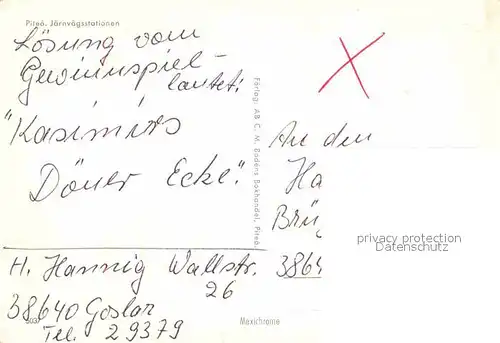 Piteå. Järnvägsstationen
Lösung vom
Gewinnspiel-
lautet:
"Kasimirs
Döner Ecke".
H. Hannig Wallstr.
26
38640 Goslar
Tel. 29379
Förlag: AB C. M. Bodéns Bokhandel, Piteå.
An den
Ha
Brü
3864
privacy protection
Datenschutz
Mexichrome